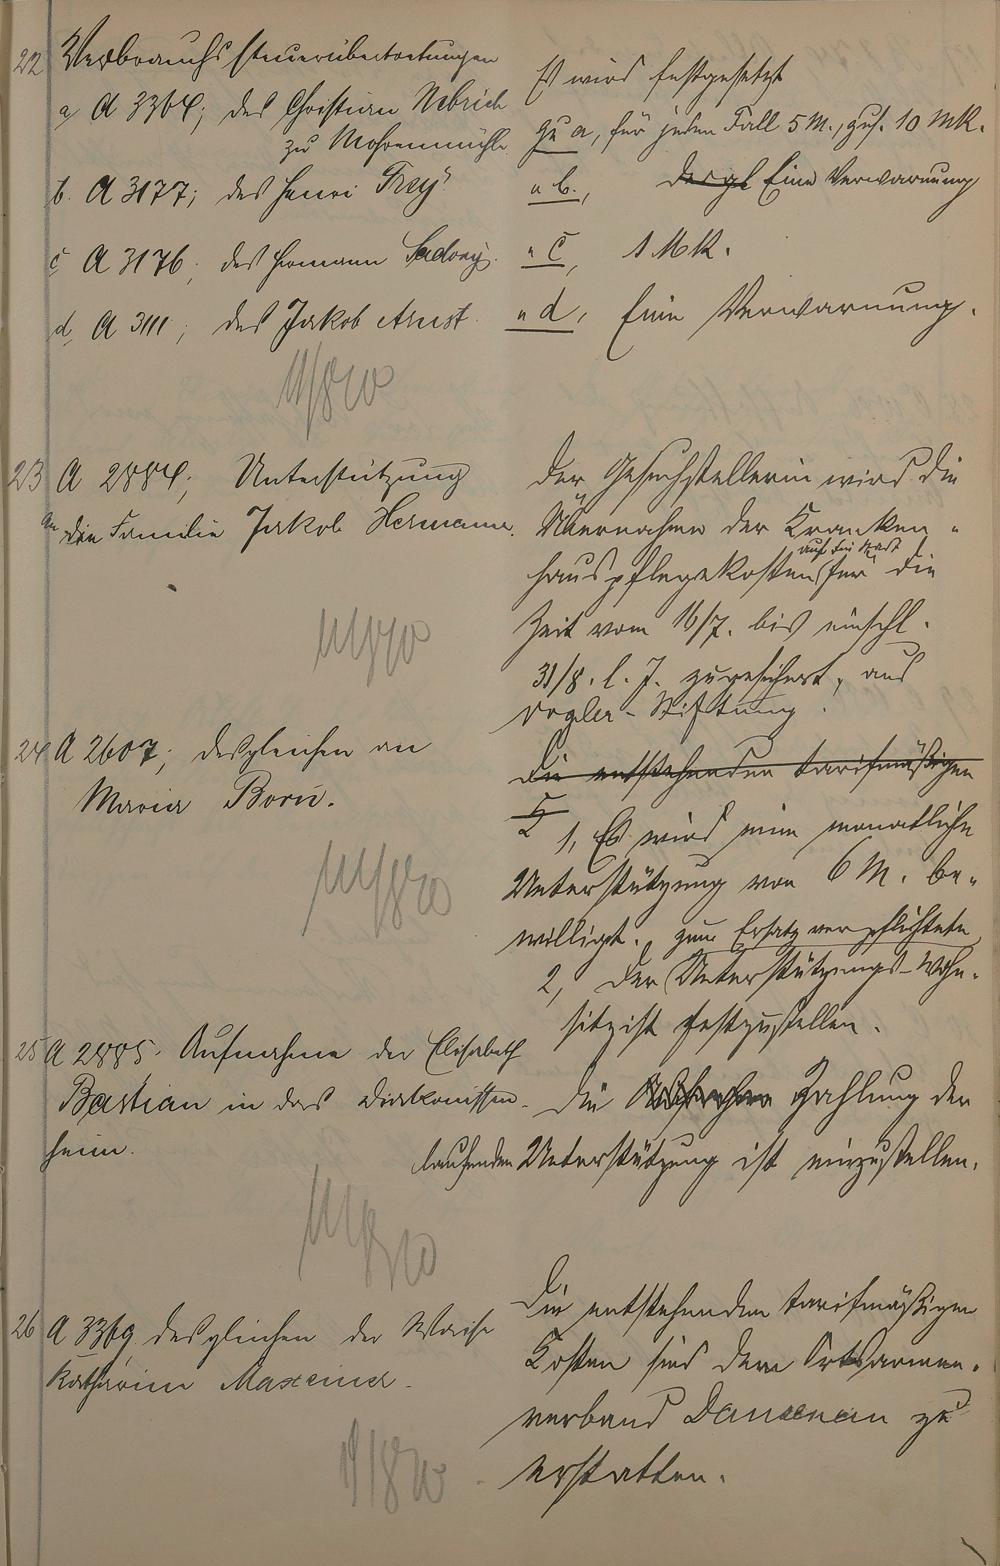 22 Verbrauchssteuerübertretungen
a, A 3364; des Christian Nebrich
zu Mohrenmühle
b. A 3177; des Henri Frey
c, A 3176, des Hermann
d, A 3111; des Jakob Arnst
Es wird festgesetzt
zu a, für jeden Fall 5 M., zus. 10 Mk.
" b., desgl Eine Verwarnung
" c, 1 Mk.
" d, Eine Verwarnung.
23 A 2884; Unterstützung
an die Familie Jakob Hermann.
Der Gesuchstellerin wird die
Übernahme der Kranken-
hauspflegekosten auf die Stadt für die
Zeit vom 16/7. bis einschl.
31/8. l. J. zugesichert, aus
Vogler-Stiftung.
24 A 2607; desgleichen an
Maria Born.
Die entstehenden tarifmäßigen
K
1, Es wird eine monatliche
Unterstützung von 6 M. be-
willigt.
2, Der zum Ersatz verpflichtete Unterstützungs-Wohn-
sitz ist festzustellen.
25 A 2885. Aufnahme der Elisabeth
Bastian in das Diakonissen-
heim.
Die Zahlung der
laufenden Unterstützung ist einzustellen.
26 A 3369 desgleichen der Waise
Katharina Maxeiner.
Die entstehenden tarifmäßigen
Kosten sind dem Ortsarmen-
verband Dausenau zu
erstatten.